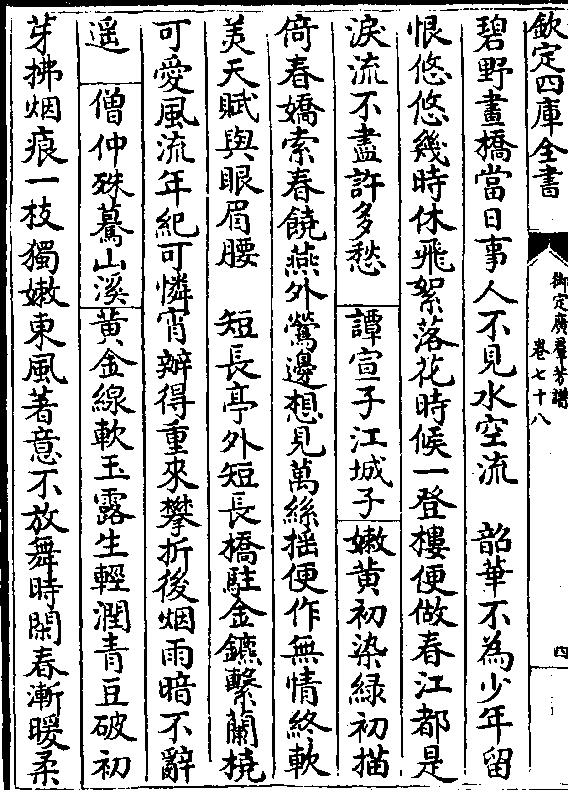 欽定四庫全書
御定廣羣芳譜
卷七十八
四
碧野畫橋當日事人不見水空流　韶華不為少年留
恨悠悠幾時休飛絮落花時候一登樓便做春江都是
淚流不盡許多愁　譚宣子江城子嫩黃初染緑初描
倚春嬌索春饒燕外鶯邊想見萬絲揺便作無情終軟
美天賦與眼眉腰　短長亭外短長橋駐金鑣繫蘭橈
可愛風流年紀可憐宵辦得重來攀折後烟雨暗不辭
遥　僧仲殊驀山溪黃金線軟玉露生輕潤青豆破初
芽拂烟痕一枝獨嫩東風著意不放舞時閑春漸暖柔